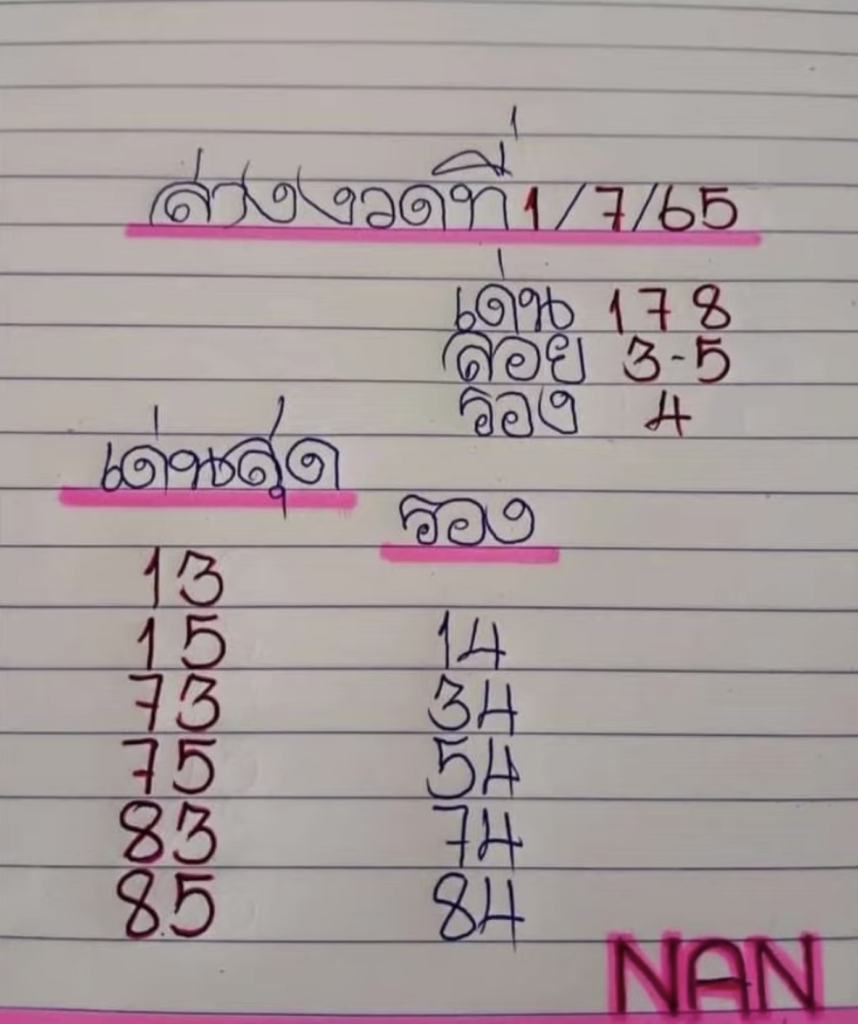 ล่างงวดที่ 1/7/65
เด่น 178
ลอย 3-5
รอง 4
เด่นสุด
รอง
13
15 14
73 34
75 54
83 74
85 84
NAN